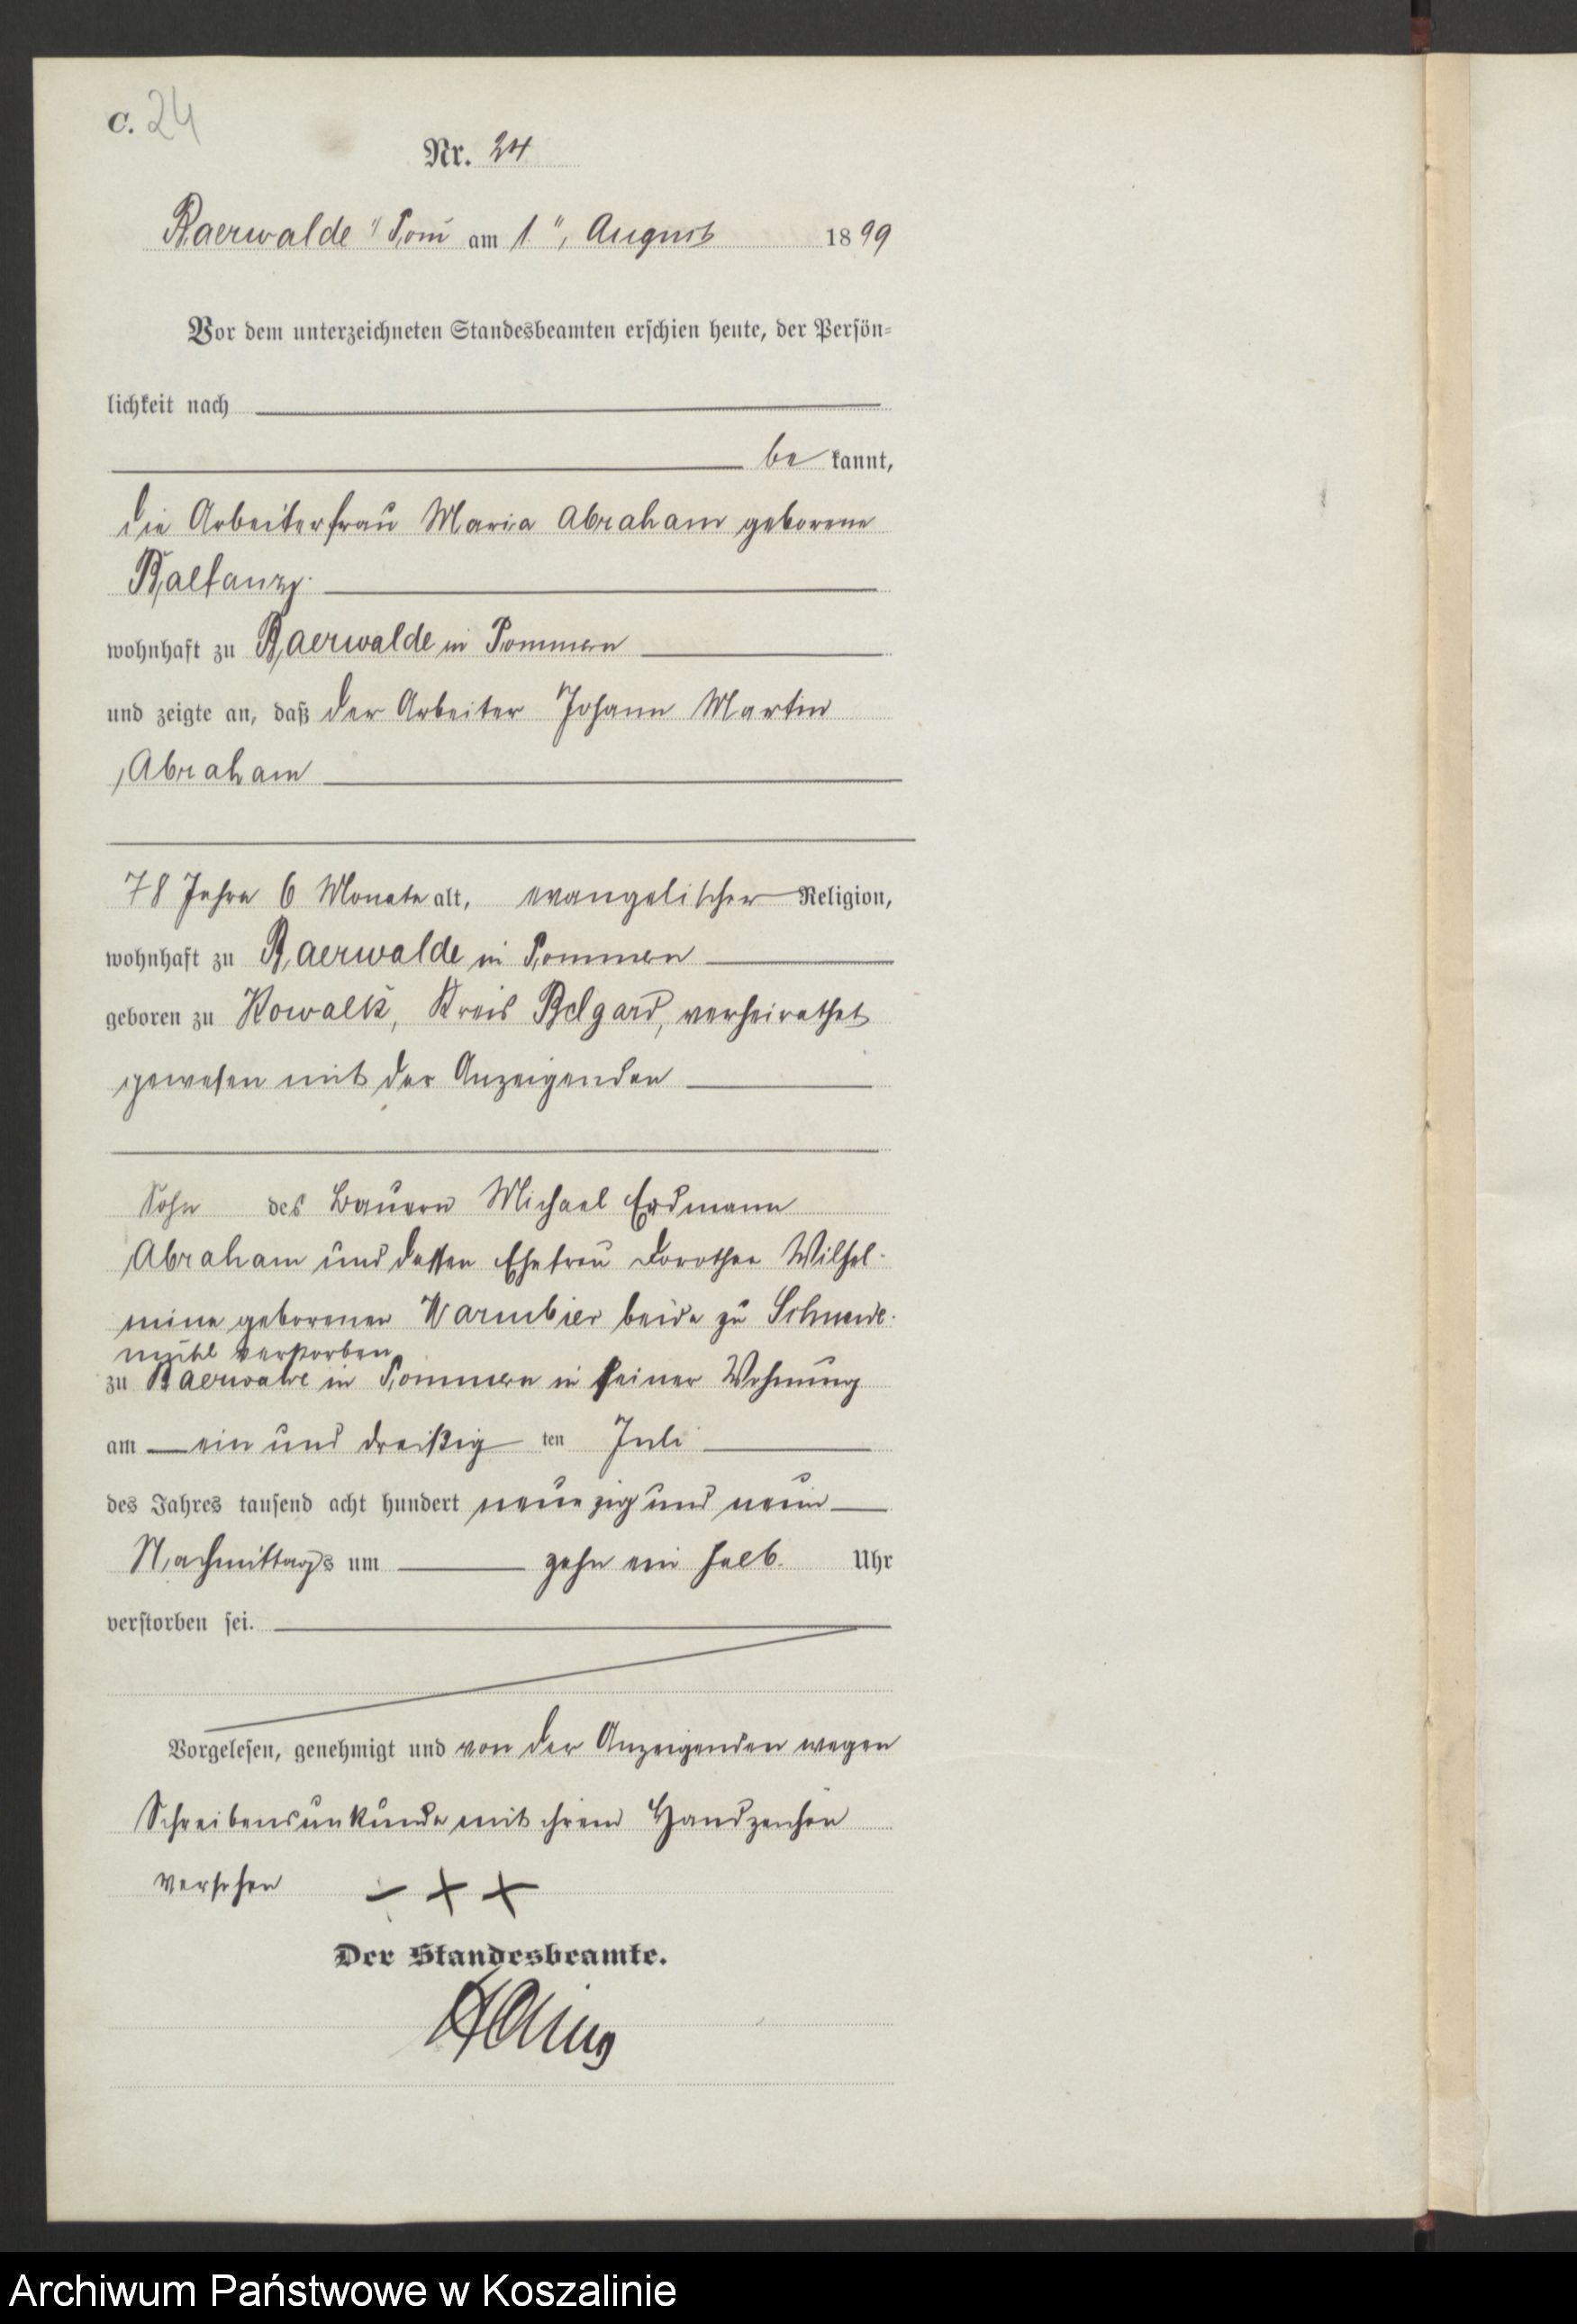 C. 24
Nr. 24
Baerwalde i/Pom am 1ten August 1899
Vor dem unterzeichneten Standesbeamten erschien heute, der Persön-
lichkeit nach
be kannt,
die Arbeiterfrau Maria Abraham geborene

wohnhaft zu Baerwalde in Pommern
und zeigte an, daß der Arbeiter Johann Martin
Abraham
78 Jahre 6 Monate alt, evangelischer Religion,
wohnhaft zu Baerwalde in Pommern
geboren zu Kowalk, Kreis Belgard, verheirathet
gewesen mit der Anzeigenden
Sohn des Bauern Michael Erdmann
Abraham und dessen Ehefrau Dorothee Wilhel-
mine geborenen Warmbier beide zu Schneide-
mühl verstorben
zu Baerwalde in Pommern in seiner Wohnung
am ein und dreißig ten Juli
des Jahres tausend acht hundert neunzig und neun
Nachmittags um zehn ein halb Uhr
verstorben sei.
Vorgelesen, genehmigt und von der Anzeigenden wegen
Schreibensunkunde mit ihrem Handzeichen
versehen - + +
Der Standesbeamte.
Archiwum Państwowe w Koszalinie